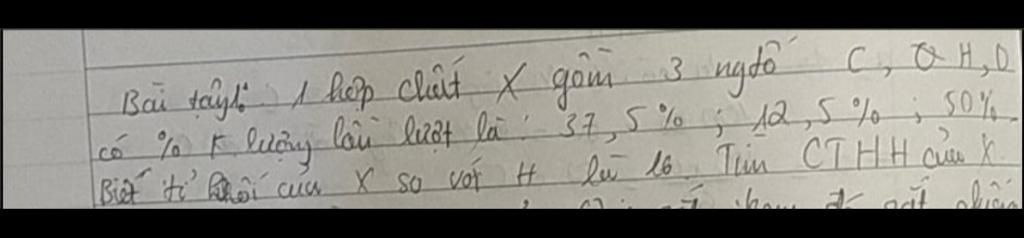 Bài tây1: 1 hợp chất X gồm 3 ngtố C, H, O
có % k lượng lần lượt là: 37,5%; 12,5%; 50%.
Biết tỉ khối của X so với H là 16. Tìm CTHH của X.